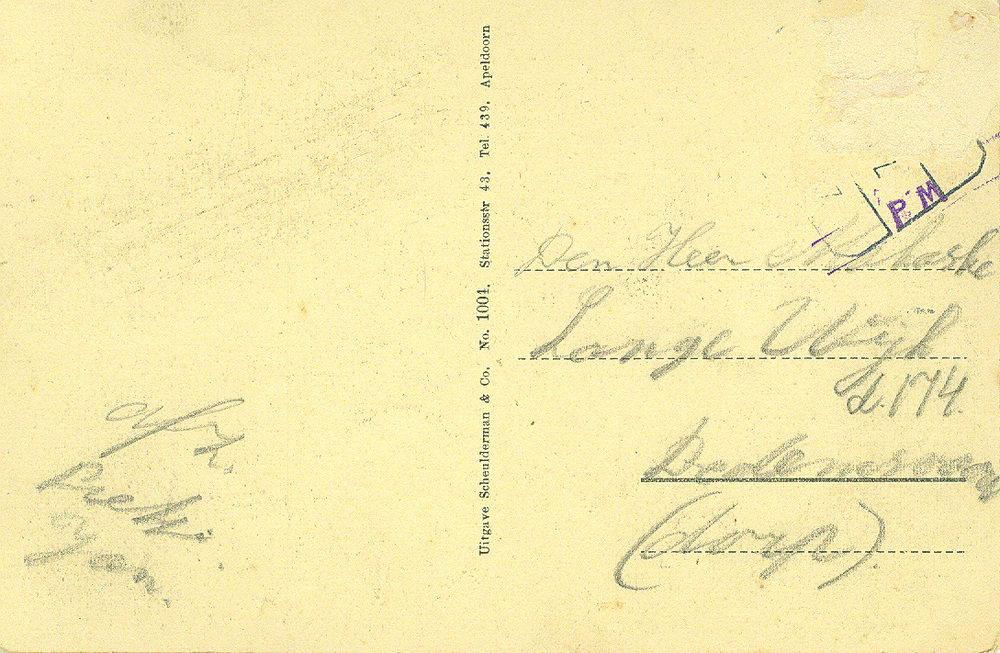 Uitgave Scheulderman & Co. No. 1001. Stationsstr 43. Tel. 439. Apeldoorn
P M
Den Heer
Lange Wijk
D. 174.
Dedemsvaart
(dorp).
Afz.